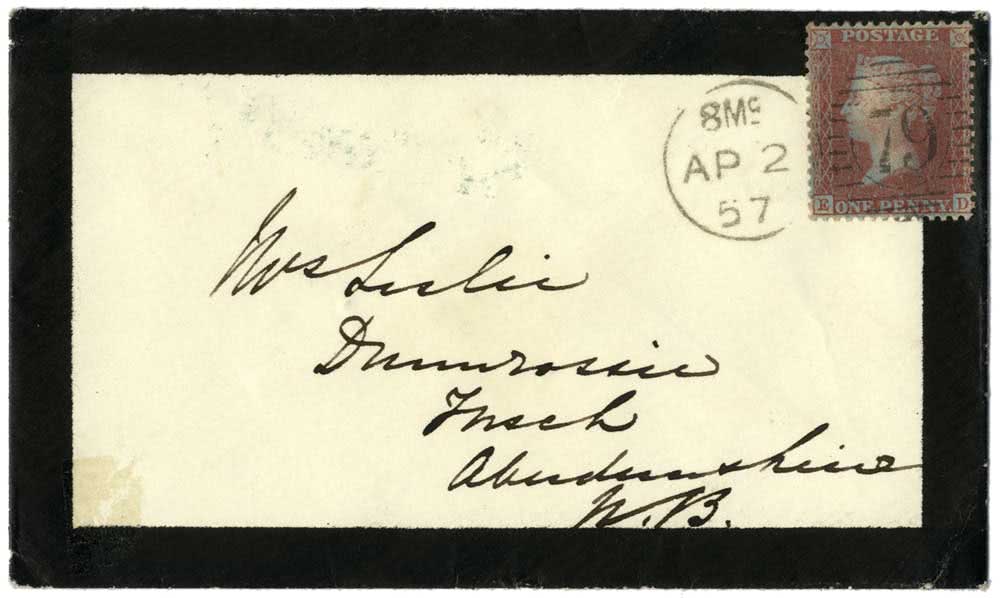 POSTAGE
79
E ONE PENNY D
8Mc
AP 2
57
Mrs Leslie
Drumrossie
Insch
Aberdeenshire
N.B.